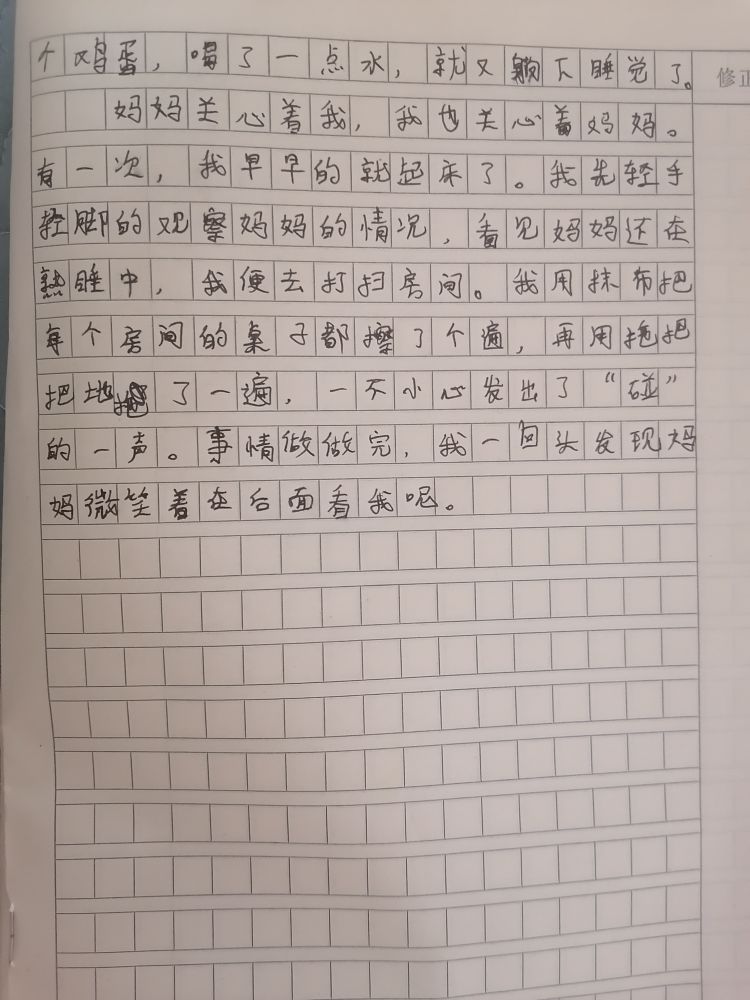 个鸡蛋，喝了一点水，就又躺下睡觉了。
修正
妈妈关心着我，我也关心着妈妈。
有一次，我早早的就起来了。我先轻手
轻脚的观察妈妈的情况，看见妈妈还在
熟睡中，我便去打扫房间。我用抹布把
每个房间的桌子都擦了个遍，再用拖把
把地拖了一遍，一不小心发出了“碰”
的一声。事情做做完，我一回头发现妈
妈微笑着在后面看我呢。